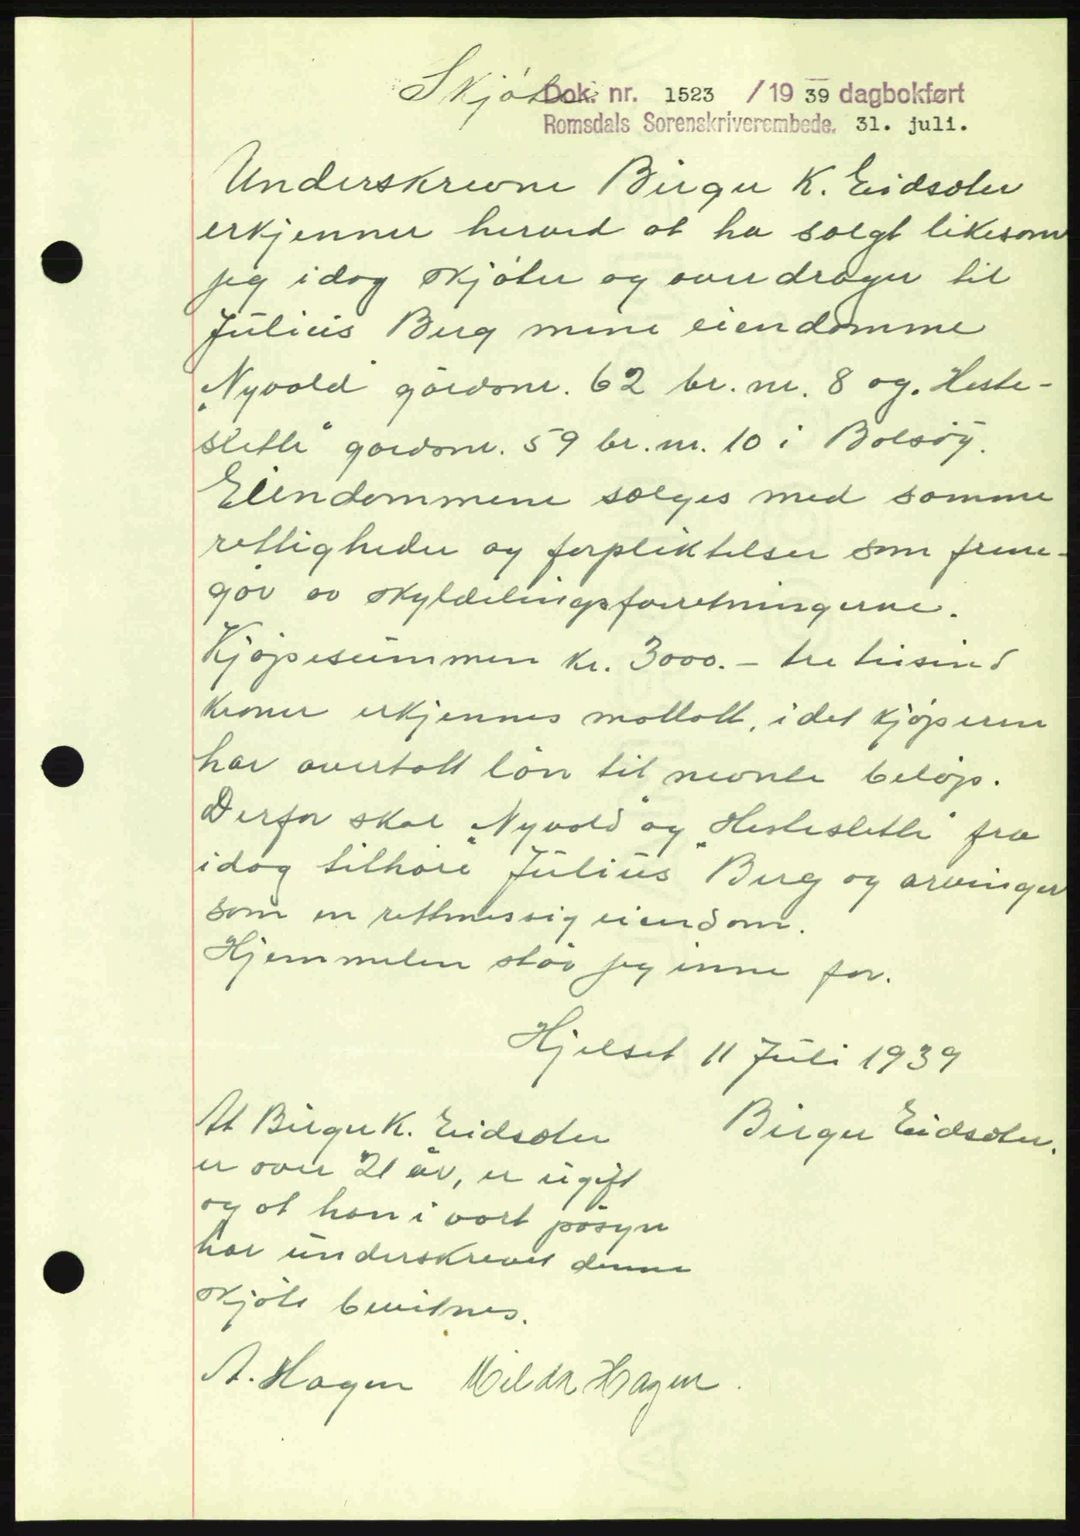 Skjöte
Dok. nr. 1523 / 19 39 dagbokført
Romsdals Sorenskriverembede. 31. juli.
Underskrevne Birger K. Eidsæter
erkjenner herved at ha solgt likesom
jeg idag skjöter og overdrager til
Julius Berg mine eiendomme
"Nyvold" gårdsnr. 62 br. nr. 8 og "Heste-
slette" gårdsnr. 59 br. nr. 10 i Bolsöy.
Eiendommene sælges med samme
rettigheder og forpliktelser som frem-
går av skyldelingsforretningerne.
Kjöpesummen kr. 3000.- tre tusind
kroner erkjennes mottatt, idet kjöperen
har overtatt lån til nevnte belöp.
Derfor skal "Nyvold" og "Hesteslette" fra
idag tilhöre Julius Berg og arvinger
som en rettmessig eiendom.
Hjemmelen står jeg inne for.
Hjelset 11 Juli 1939
Birger Eidsæter.
At Birger K. Eidsæter
er over 21 år, er ugift
og at han i vort påsyn
har underskrevet denne
skjöte bevitnes.
A. Hagen Hilda Hagen.